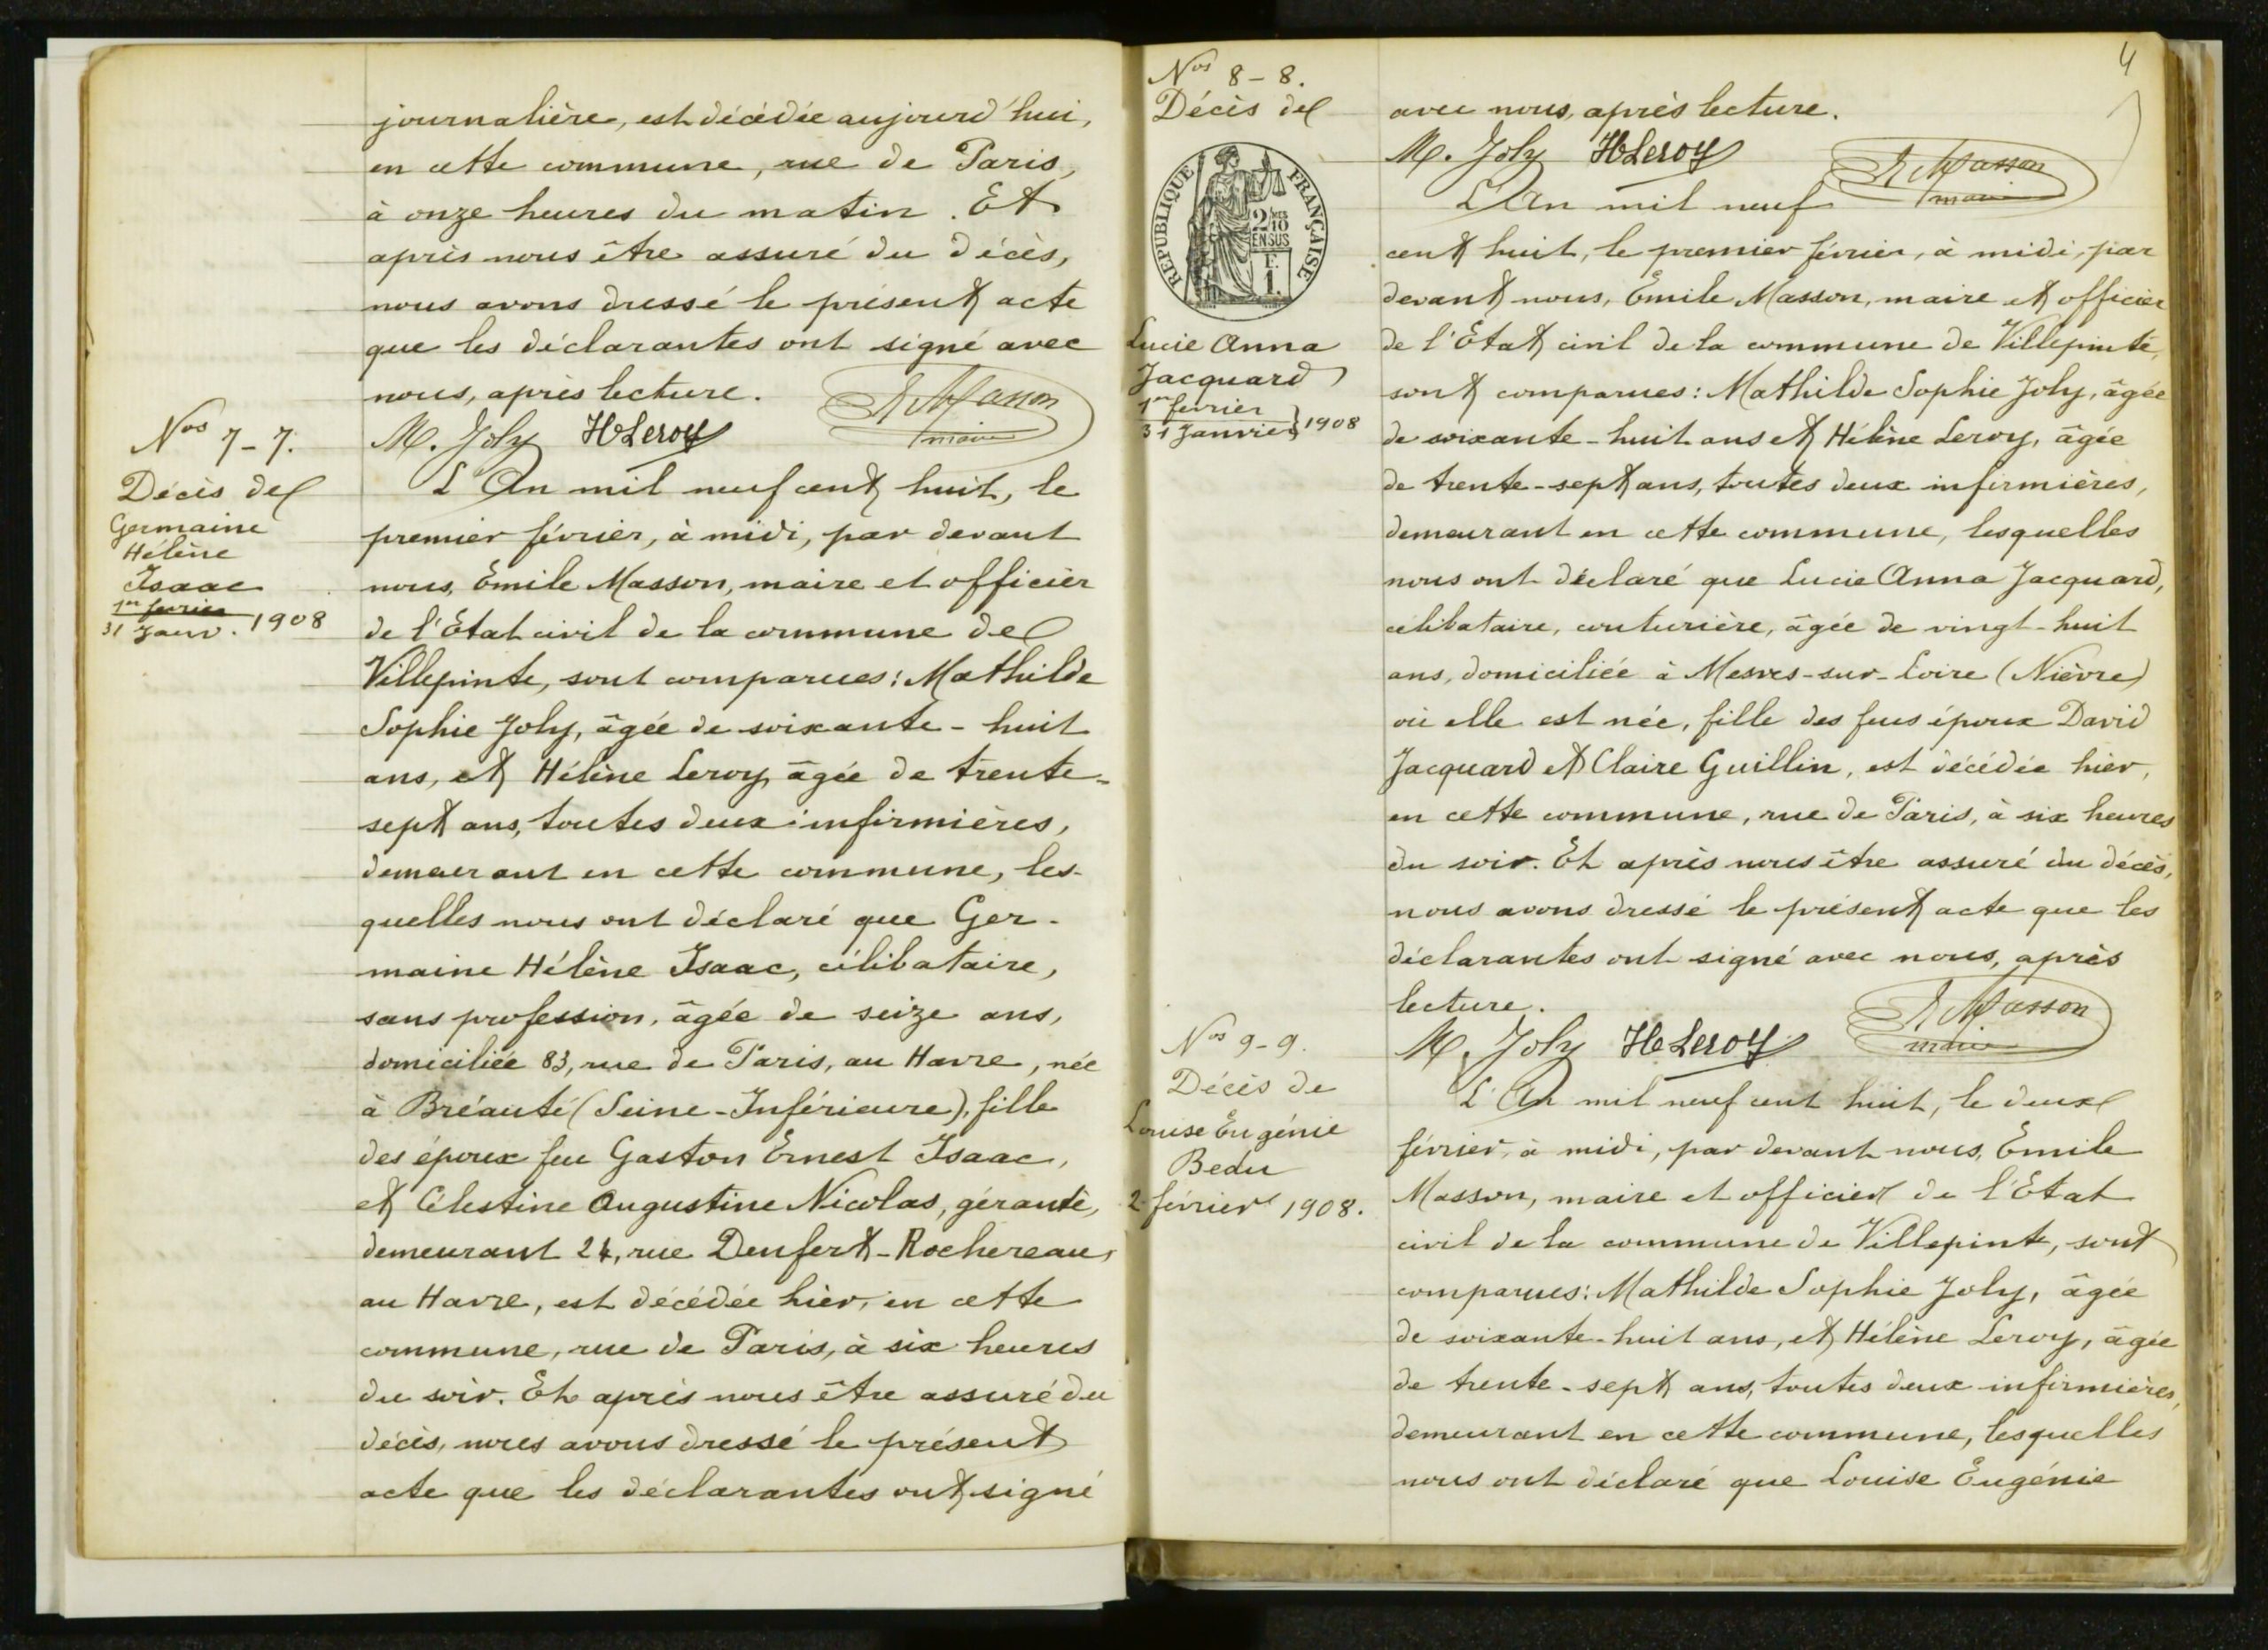 journalière, est décédée aujourd'hui,
en cette commune, rue de Paris,
à onze heures du matin. Et
après nous être assuré du décès,
nous avons dressé le présent acte
que les déclarantes ont signé avec
nous, après lecture.
M. Joly HLeroy E Masson
maire
Nos 7-7.
Décès de
Germaine
Hélène
Isaac
1er février
31 Janv. 1908
L'An mil neuf cent huit, le
premier février, à midi, par devant
nous, Emile Masson, maire et officier
de l'Etat civil de la commune de
Villepinte, sont comparues: Mathilde
Sophie Joly, âgée de soixante-huit
ans, et Hélène Leroy, âgée de trente-
sept ans, toutes deux infirmières,
demeurant en cette commune, les-
quelles nous ont déclaré que Ger-
maine Hélène Isaac, célibataire,
sans profession, âgée de seize ans,
domiciliée 83, rue de Paris, au Havre, née
à Bréauté (Seine-Inférieure), fille
des époux feu Gaston Ernest Isaac,
et Célestine Augustine Nicolas, gérante,
demeurant 24, rue Denfert-Rochereau,
au Havre, est décédée hier, en cette
commune, rue de Paris, à six heures
du soir. Et après nous être assuré du
décès, nous avons dressé le présent
acte que les déclarantes ont signé
4
Nos 8-8.
Décès de
RÉPUBLIQUE FRANÇAISE
2/10
EN SUS
F.
1.
Lucie Anna
Jacquard
1er février
31 Janvier 1908
avec nous, après lecture.
M. Joly HLeroy E Masson
maire
L'An mil neuf
cent huit, le premier février, à midi, par
devant nous, Emile Masson, maire et officier
de l'Etat civil de la commune de Villepinte,
sont comparues: Mathilde Sophie Joly, âgée
de soixante-huit ans et Hélène Leroy, âgée
de trente-sept ans, toutes deux infirmières,
demeurant en cette commune, lesquelles
nous ont déclaré que Lucie Anna Jacquard,
célibataire, couturière, âgée de vingt-huit
ans, domiciliée à Mesves-sur-Loire (Nièvre)
où elle est née, fille des feus époux David
Jacquard et Claire Guillin, est décédée hier,
en cette commune, rue de Paris, à six heures
du soir. Et après nous être assuré du décès,
nous avons dressé le présent acte que les
déclarantes ont signé avec nous, après
lecture.
M. Joly HLeroy E Masson
maire
Nos 9-9.
Décès de
Louise Eugénie
Bedu
2 février 1908.
L'An mil neuf cent huit, le deux
février, à midi, par devant nous, Emile
Masson, maire et officier de l'Etat
civil de la commune de Villepinte, sont
comparues: Mathilde Sophie Joly, âgée
de soixante-huit ans, et Hélène Leroy, âgée
de trente-sept ans, toutes deux infirmières,
demeurant en cette commune, lesquelles
nous ont déclaré que Louise Eugénie